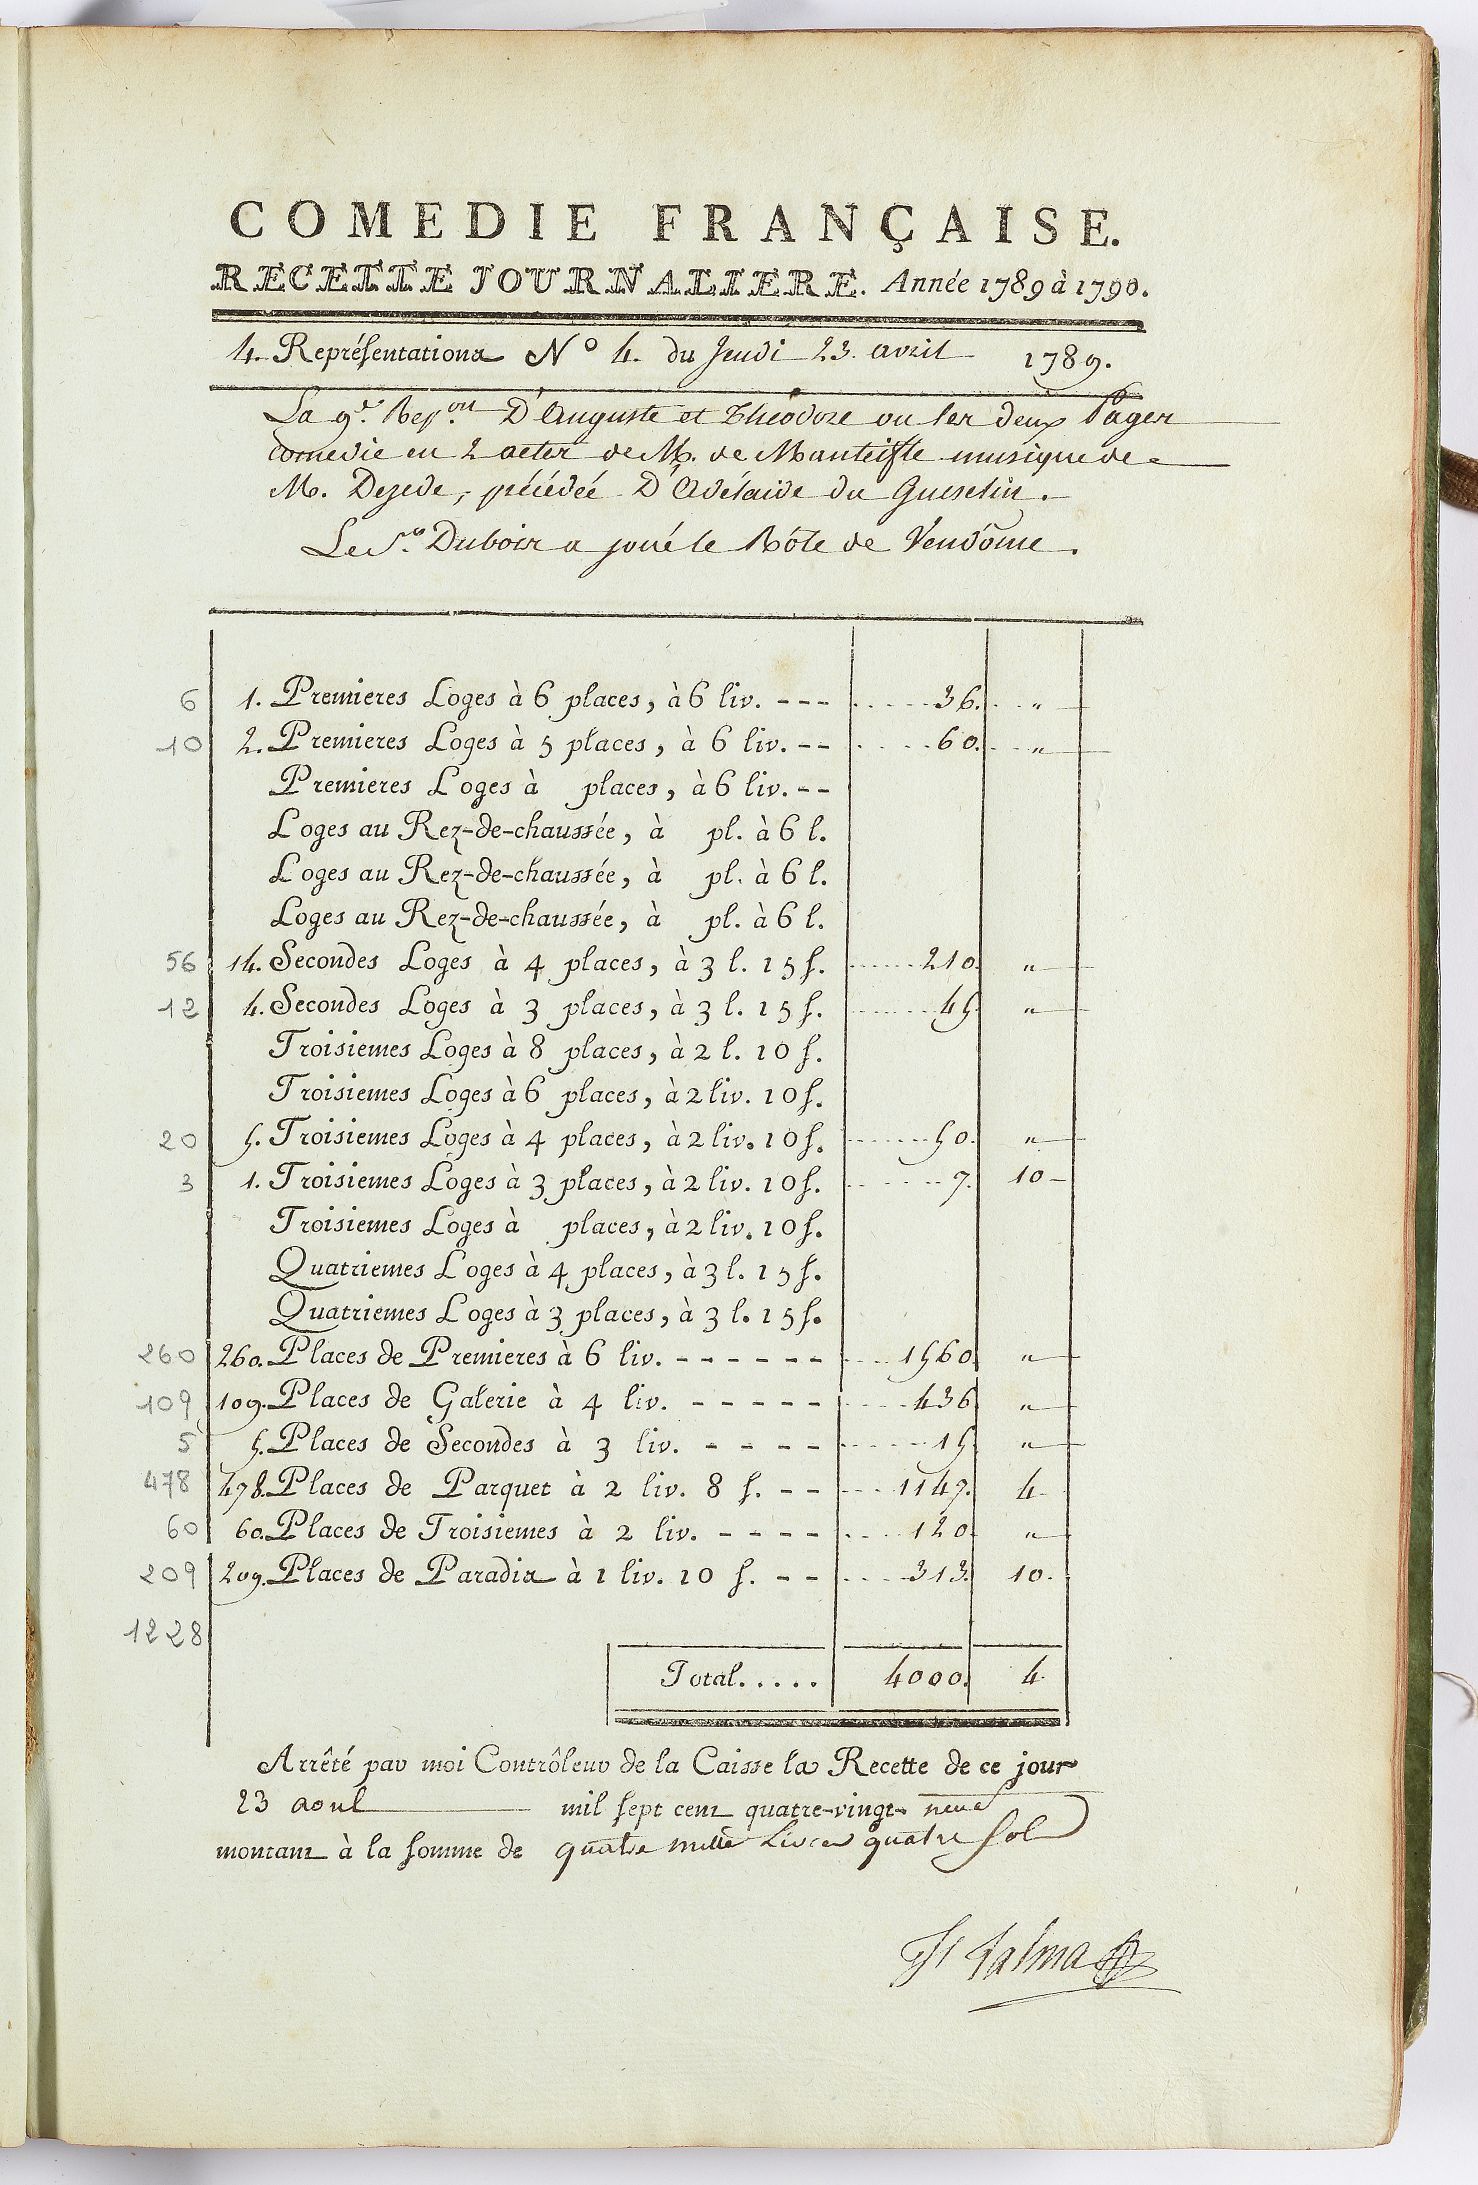 COMEDIE FRANÇAISE.
RECETTE JOURNALIERE. Année 1789 à 1790.
4. Représentations N° 4. du Jeudi 23. avril 1789.
La 9.e Rep.on D'Auguste et Théodore ou les deux Pages
comédie en 2 actes de M. de Manteifle musique de
M. Dezede, précédée D'Adélaide du Guesclin.
Le S.r Dubois a joué le Rôle de Vendôme.
6 1. Premieres Loges à 6 places, à 6 liv. --- 36. "
10 2. Premieres Loges à 5 places, à 6 liv. -- 60. "
Premieres Loges à places, à 6 liv. --
Loges au Rez-de-chaussée, à pl. à 6 l.
Loges au Rez-de-chaussée, à pl. à 6 l.
Loges au Rez-de-chaussée, à pl. à 6 l.
56 14. Secondes Loges à 4 places, à 3 l. 15 s. 210. "
12 4. Secondes Loges à 3 places, à 3 l. 15 s. 45. "
Troisiemes Loges à 8 places, à 2 l. 10 s.
Troisiemes Loges à 6 places, à 2 liv. 10 s.
20 5. Troisiemes Loges à 4 places, à 2 liv. 10 s. 50. "
3 1. Troisiemes Loges à 3 places, à 2 liv. 10 s. 7. 10
Troisiemes Loges à places, à 2 liv. 10 s.
Quatriemes Loges à 4 places, à 3 l. 15 s.
Quatriemes Loges à 3 places, à 3 l. 15 s.
260 260. Places de Premieres à 6 liv. ------ 1560. "
109 109. Places de Galerie à 4 liv. ----- 436 "
5 5. Places de Secondes à 3 liv. ---- 15 "
478 478. Places de Parquet à 2 liv. 8 s. -- 1147. 4
60 60. Places de Troisiemes à 2 liv. ---- 120. "
209 209. Places de Paradis à 1 liv. 10 s. -- 313. 10.
1228
Total..... 4000. 4
Arrêté par moi Contrôleur de la Caisse la Recette de ce jour
23 aoul mil sept cent quatre-vingt-neuf
montant à la somme de quatre mille Livres quatre sols
St Talma